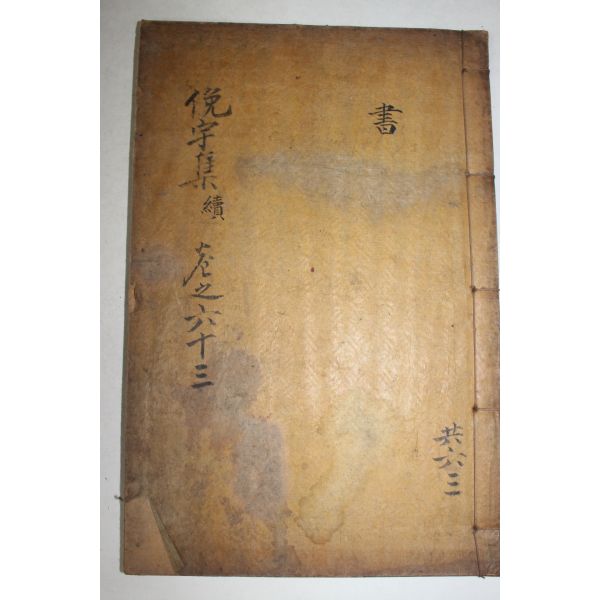 俛宇集 續 卷之六十三
書
共六三